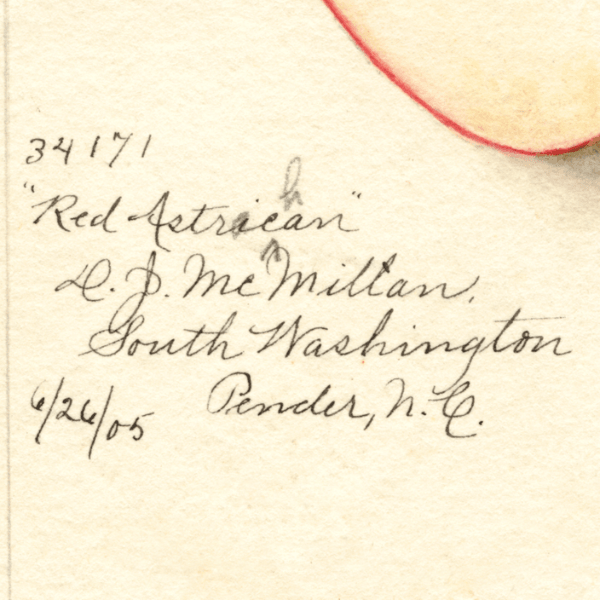 34171
"Red Astrichan"
D. J. McMillan,
South Washington
Pender, N.C.
6/26/05